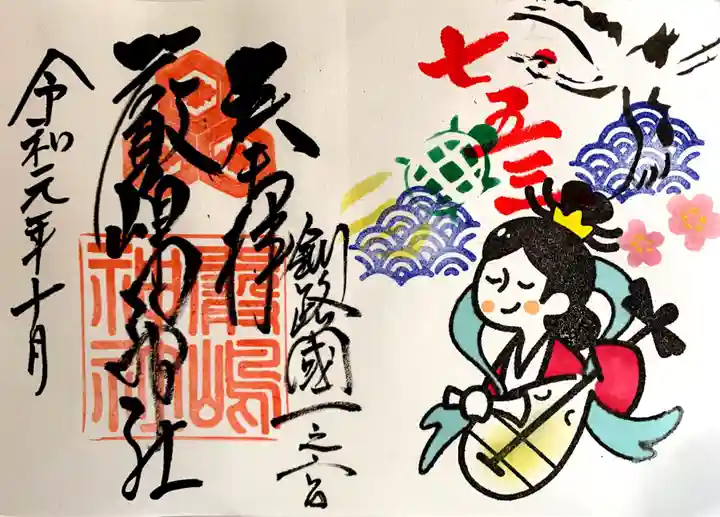 七五三
釧路國一之宮
奉拝
厳嶋神社
令和元年十月
嚴嶋
神社